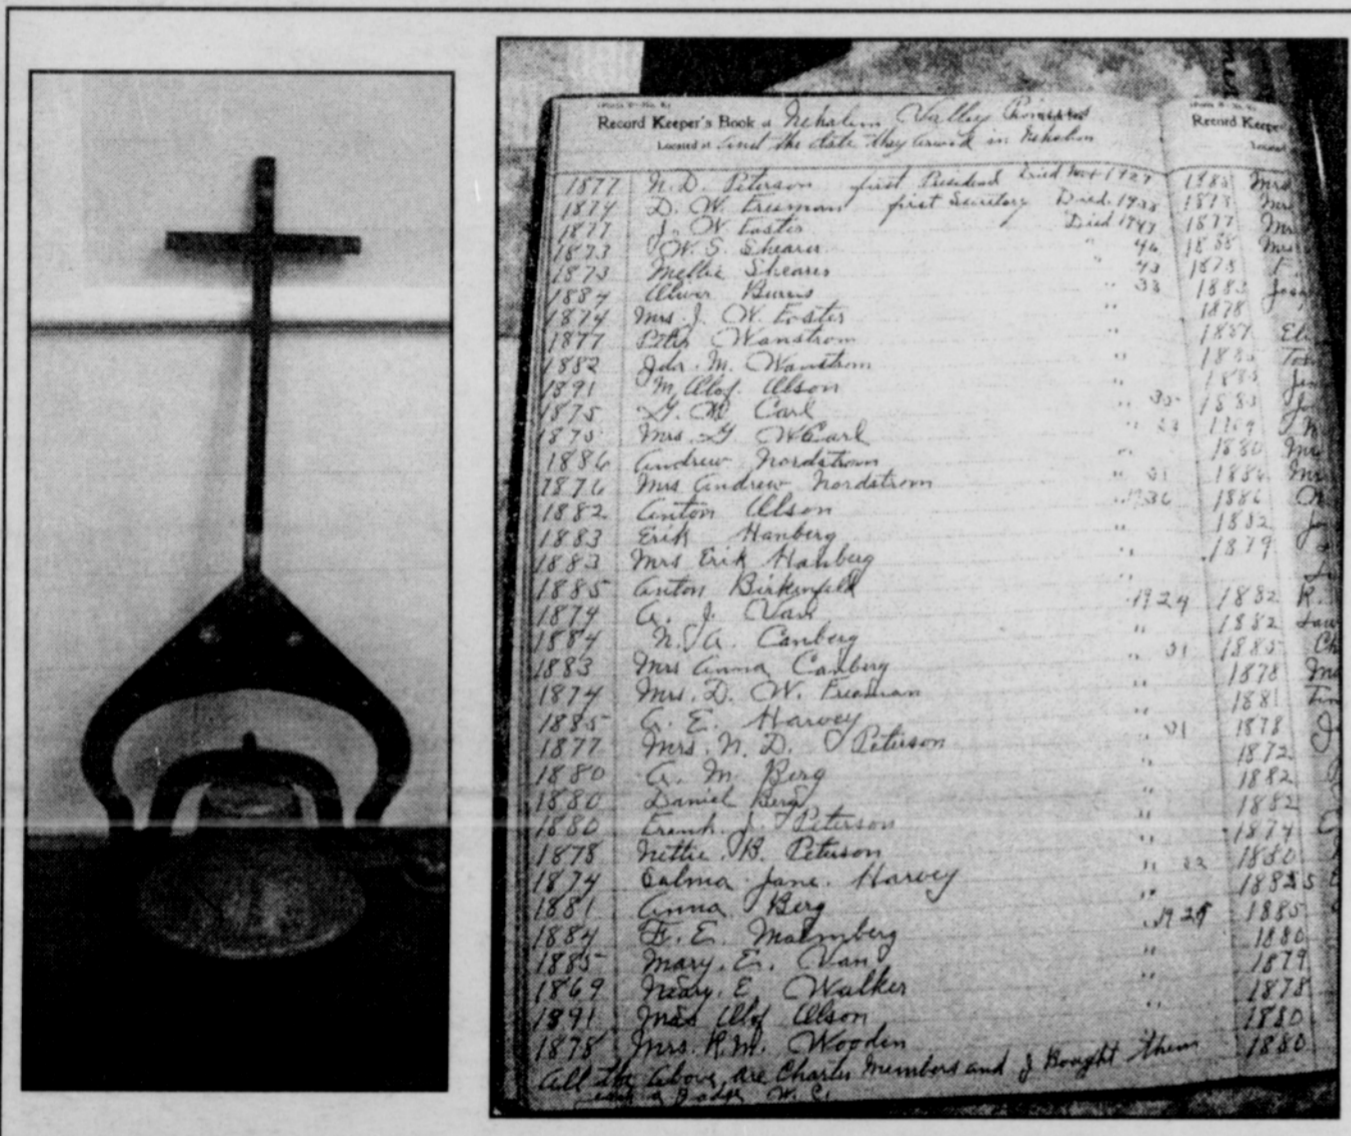 Record Keeper's Book of Nehalem Valley Pioneers
Located at and the date they arrived in Nehalem
1877 N. D. Peterson first President Died Nov 1927
1874 D. W. Freeman first Secretary Died 1938
1877 J. W. Foster Died 1947
1873 W. S. Shearer " 46
1873 Mellie Shearer " 43
1884 Oliver Burris " 33
1874 Mrs. J. W. Foster "
1877 Peter Wanstrom "
1882 Ida. M. Wanstrom "
1891 M Olof. Olson "
1875 G. W Carl " 35
1875 Mrs. G W Carl " 23
1886 Andrew Nordstrom "
1876 Mrs Andrew Nordstrom " 31
1882 Anton Olson " 1936
1883 Erik Hanberg "
1883 Mrs Erik Hanberg "
1885 Anton Birkenfeld "
1874 A. J. Van 1924
1884 N. A. Canberg "
1883 Mrs Anna Canberg " 31
1874 Mrs. D. W. Freeman "
1885 A. E. Harvey "
1877 Mrs. N. D. Peterson " 31
1880 A. M. Berg "
1880 Daniel Berg "
1880 Frank. J. Peterson "
1878 Nettie. B. Peterson "
1874 Calma Jane. Harvey " 22
1881 Anna Berg "
1884 F. E. Malmberg
1885 Mary. E. Van "
1869 Mary. E Walker "
1891 Mrs Olof Olson "
1878 Mrs. R. M. Wooden
All the Above are Charter Members and I Bought them
each a Badge W. S.
Record Keeper
Located
1885 Mrs
1873 Mrs
1877 Mrs
1888 Mrs
1878
1883
1878
1887
1885
1883
1883
1880
1886
1886
1882
1879
1882 R.
1882
1885 Ch
1878
1881
1878
1872
1882
1882
1874
1880
1885
1885
1880
1879
1878
1880
1880